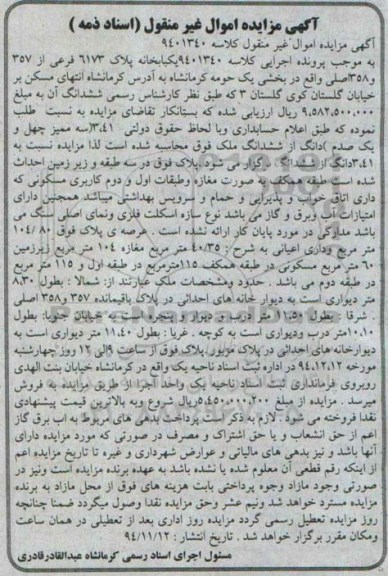 آگهی مزایده اموال غیر منقول (اسناد ذمه )
آگهی مزایده اموال غیر منقول کلاسه ۹۴۰۱۳۴۰
به موجب پرونده اجرایی کلاسه ۹۴۰۱۳۴۰یکبابخانه پلاک ۶۱۷۳ فرعی از ۳۵۷
و۳۵۸اصلی واقع در بخشی یک حومه کرمانشاه به آدرس کرمانشاه انتهای مسکن بر
خیابان گلستان کوی گلستان ۳ که طبق نظر کارشناس رسمی ششدانگ آن به مبلغ
۹,۵۸۲,۵۰۰,۰۰۰ ریال ارزیابی شده که بستانکار تقاضای مزایده به نسبت طلب
نموده که طبق اعلام حسابداری وبا لحاظ حقوق دولتی ۳.۴۱(سه ممیز چهل و
یک صدم )دانگ از ششدانگ ملک فوق محاسبه شده است لذا مزایده نسبت به
۳.۴۱دانگ ازششدانگ برگزار می شود. پلاک فوق در سه طبقه و زیر زمین احداث
شده است طبقه همکف به صورت مغازه وطبقات اول و دوم کاربری مسکونی که
دارای اتاق خواب و پذیرایی و حمام و سرویس بهداشتی میباشد همچنین دارای
امتیازات آب وبرق و گاز می باشد نوع سازه اسکلت فلزی ونمای اصلی سنگ می
باشد مدارکی در مورد پایان کار ارائه نشده است . عرصه ی پلاک فوق ۱۰۴/۸۰
متر مربع ودارای اعیانی به شرح : ۴۰/۳۵ متر مربع مغازه ۱۰۴ متر مربع زیرزمین
۶۰ متر مربع مسکونی در طبقه همکف ۱۱۵مترمربع در طبقه اول و ۱۱۵ متر مربع
در طبقه دوم می باشد . حدود ومشخصات ملک عبارتند از: شمالا : بطول ۸.۳۰
متر دیواری است به دیوار خانه های احداثی در پلاک باقیمانده ۳۵۷ و۳۵۸ اصلی
. شرقا : بطول ۱۱.۵۰ متر درب و دیواری و پنجره است به خیابان جنوبا: بطول
۱۰.۱۰متر درب ودیواری است به کوچه . غربا : بطول ۱۱.۴۰ متر دیواری است به
دیوارخانه های احداثی در پلاک مزبور. پلاک فوق از ساعت ۹الی ۱۲ روز چهارشنبه
مورخه ۹۴.۱۲.۱۲ در اداره ثبت اسناد ناحیه یک واقع در کرمانشاه خیابان بنت الهدی
روبروی فرمانداری ثبت اسناد ناحیه یک واحد اجرا از طریق مزایده به فروش
میرسد . مزایده از مبلغ ۵,۴۵۰,۰۰۰,۲۰۰ریال شروع وبه بالاترین قیمت پیشنهادی
نقدا فروخته می شود . لازم به ذکر است پرداخت بدهی های مربوط به اب برق گاز
اعم از حق انشعاب و یا حق اشتراک و مصرف در صورتی که مورد مزایده دارای
آنها باشد و نیز بدهی های مالیاتی و عوارض شهرداری و غیره تا تاریخ مزایده اعم
از اینکه رقم قطعی آن معلوم شده یا نشده باشد به عهده برنده مزایده است ونیز در
صورتی وجود مازاد وجوه پرداختی بابت هزینه های فوق از محل مازاد به برنده
مزایده مسترد خواهد شد ونیم عشر وحق مزایده نقدا وصول میگردد ضمنا چنانچه
روز مزایده تعطیل رسمی گردد مزایده روز اداری بعد از تعطیلی در همان ساعت
ومکان مقرر برگزار خواهد شد . تاریخ انتشار : ۹۴/۱۱/۱۲
مسئول اجرای اسناد رسمی کرمانشاه عبدالقادرقادری